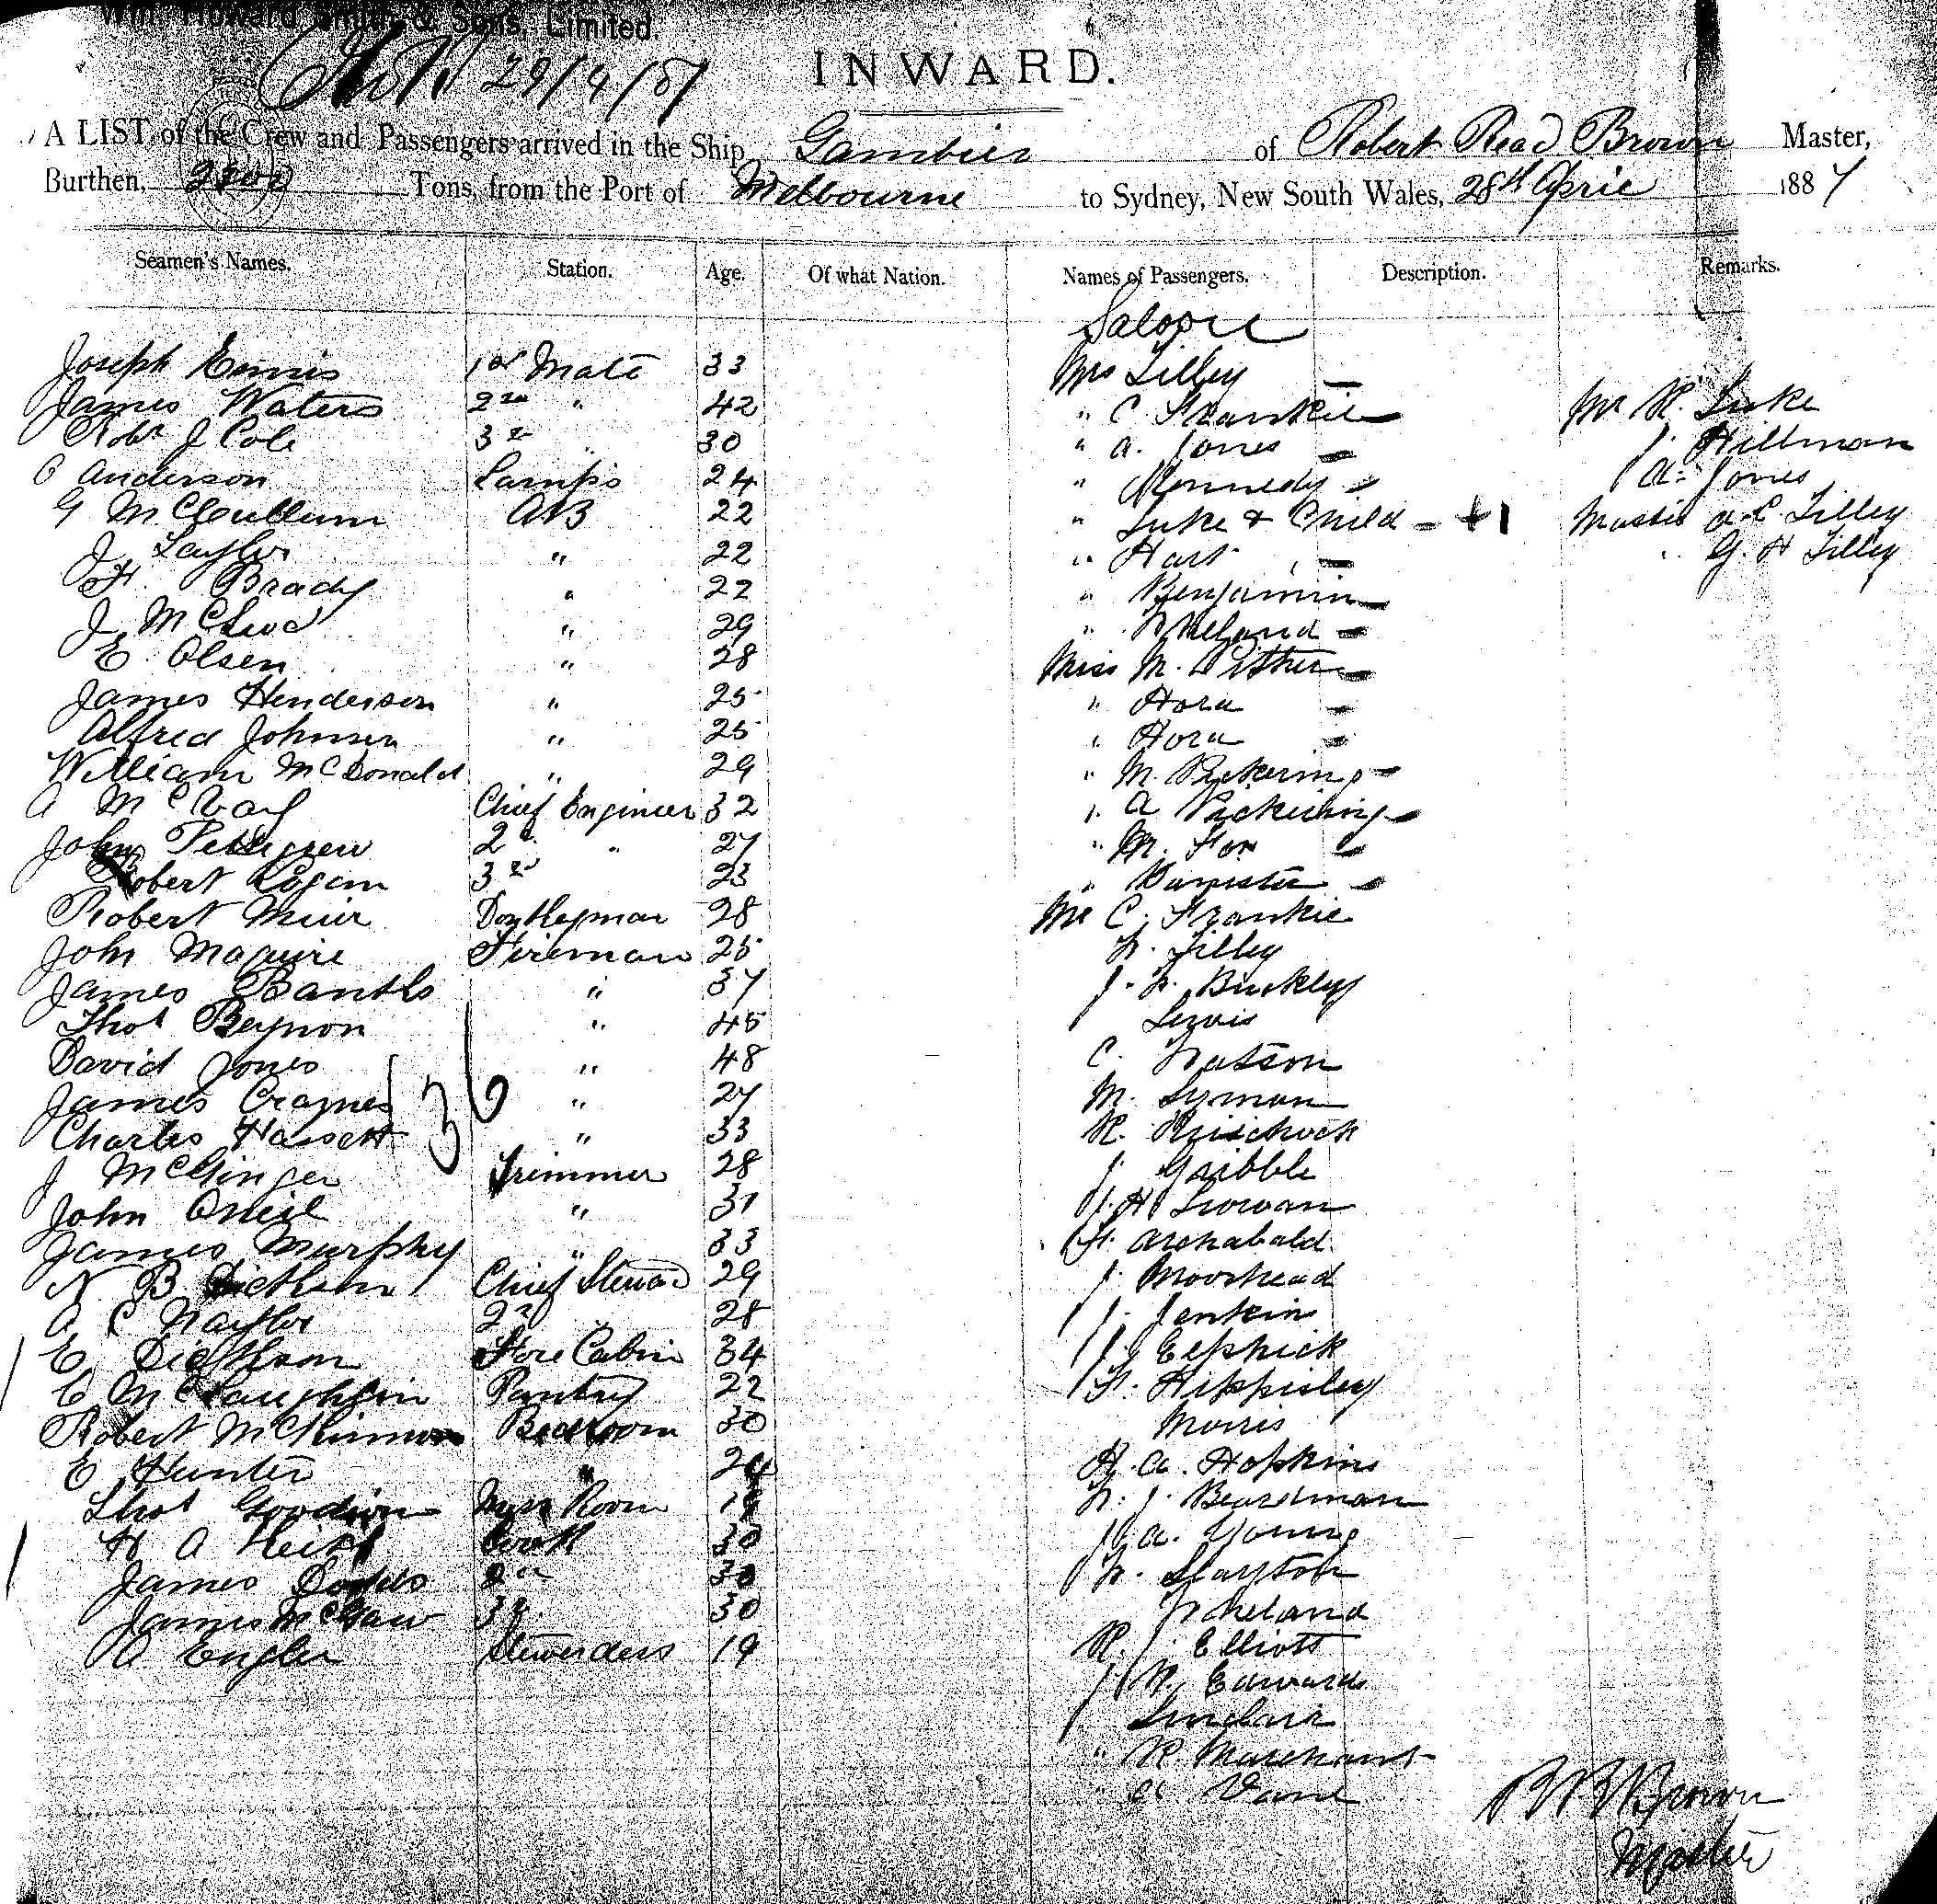 Wm. Howard Smith & Sons, Limited.
29/4/87
INWARD.
A LIST of the Crew and Passengers arrived in the Ship Gambier of Robert Read Brown Master,
Burthen, Tons, from the Port of Melbourne to Sydney, New South Wales, 28th April 1887
Seamen's Names. Station. Age. Of what Nation. Names of Passengers. Description. Remarks.
Saloon
Joseph Ennis 1st Mate 33 Mrs Lilley
James Waters 2nd " 42 " C Frankie Mr R. Luke
Robt J Cole 3rd " 30 " A. Jones J. Hillman
Anderson Lamps 24 " Kennedy A. Jones
G McCullum AB 22 " Luke & Child +1 Master A. C. Lilley
J Taylor " 22 " Hart " G. H Lilley
F. Brady " 22 " Benjamin
J McLeod " 29 " Ireland
E. Olsen " 28 Miss M.
James Henderson " 25 " Hora
Alfred Johnson " 25 " Hora
William McDonald " 29 " M. Pickering
A Chief Engineer 32 " A Pickering
John Pettigrew 2nd " 27 " M. Fox
Robert Logan 3rd 23 " Banister
Robert Muir Donkeyman 28 Mr C. Frankie
John Maguire Fireman 25 Lilley
James Banths " 37 J. Buckley
Thos Beynon " 45 Lewis
David Jones " 48 C. Watson
James Craynes " 27 M. Lyman
Charles Hassett " 33 R.
36
J McGinger Trimmer 28 J. Gribble
John Oneil " 31 J. H. Lowan
James Murphy " 33 Archabald
N B Chief Steward 29 J. Moorhead
A C Naylor 2nd 28 J. Jenkin
E Dickson Fore Cabin 34 J. Elphick
C McLaughlin Pantry 22 Hippisley
Robert McKinnon Bedroom 30 Morris
E Hunter " H. A. Hopkins
Thos Goodwin Mess Room 19 J. Boardman
H A Cook 30 A. Young
James Dodds 2nd 30 Slayton
James McGaw 3rd 30 Ireland
A Engler Stewerdess 19 R. J. Elliott
R. Edwards
Sinclair
" R Marchant
" Vane
R R Brown
Master